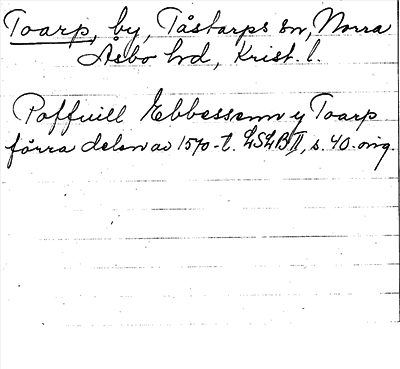 Toarp, by, Tåstarps sn, Norra
Åsbo hd, Krist. l.
Poffuill Ebbessenn y Toarp
förra delen av 1570-t. LSLB II, s. 40. orig.